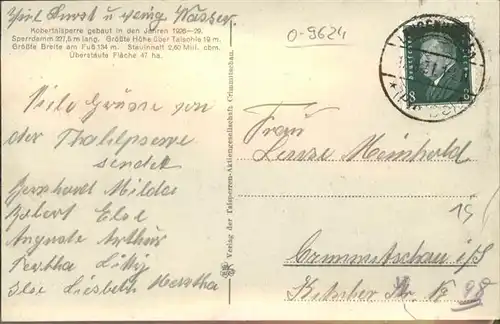 Viel Durst u wenig Wasser.
Kobertalsperre gebaut in den Jahren 1926—29.
Sperrdamm 227,5 m lang. Größte Höhe über Talsohle 19 m.
Größte Breite am Fuß 134 m. Stauinhalt 2,60 Mill. cbm.
Überstaute Fläche 47 ha.
0-9624
8 8
Viele Grüsse von
der Thahlsperre
sendet
Gerhardt Milda
Robert Else
Auguste Arthur
Bertha Lilly
Ilse Liesbeth Hertha
Verlag der Talsperren-Aktiengesellschaft Crimmitschau.
Frau
Meinhold
15
Crimmitschau i/S
Str. No 98